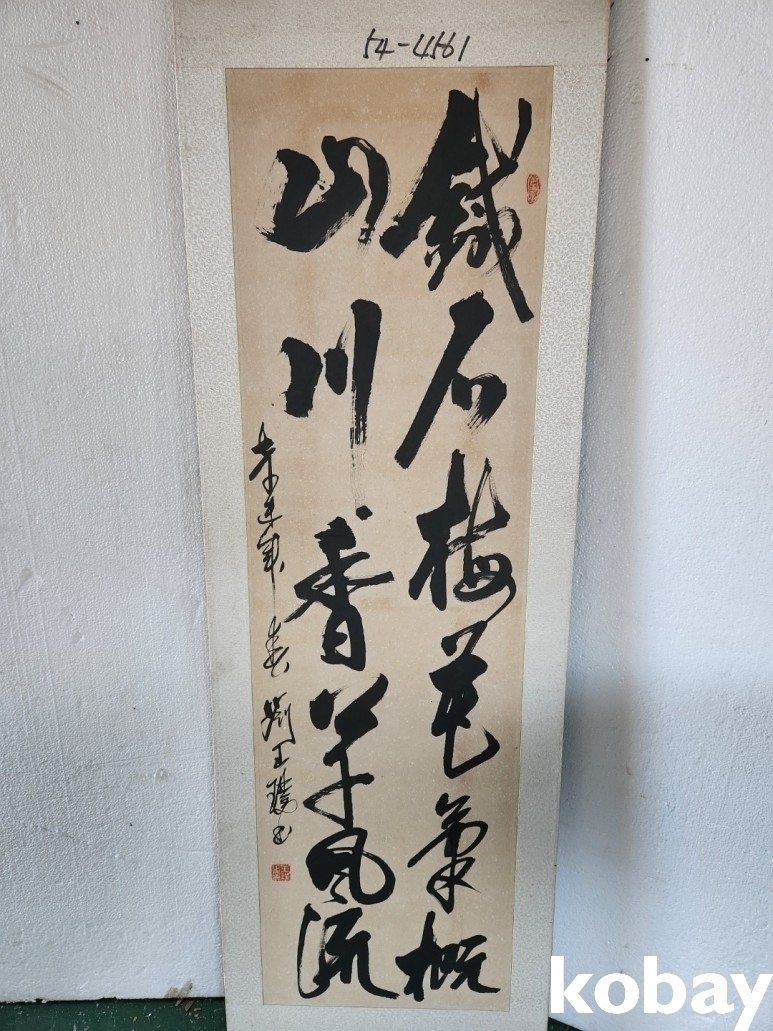 54-4561
鐵石梅花氣概
山川香草風流
年春劉玉
kobay